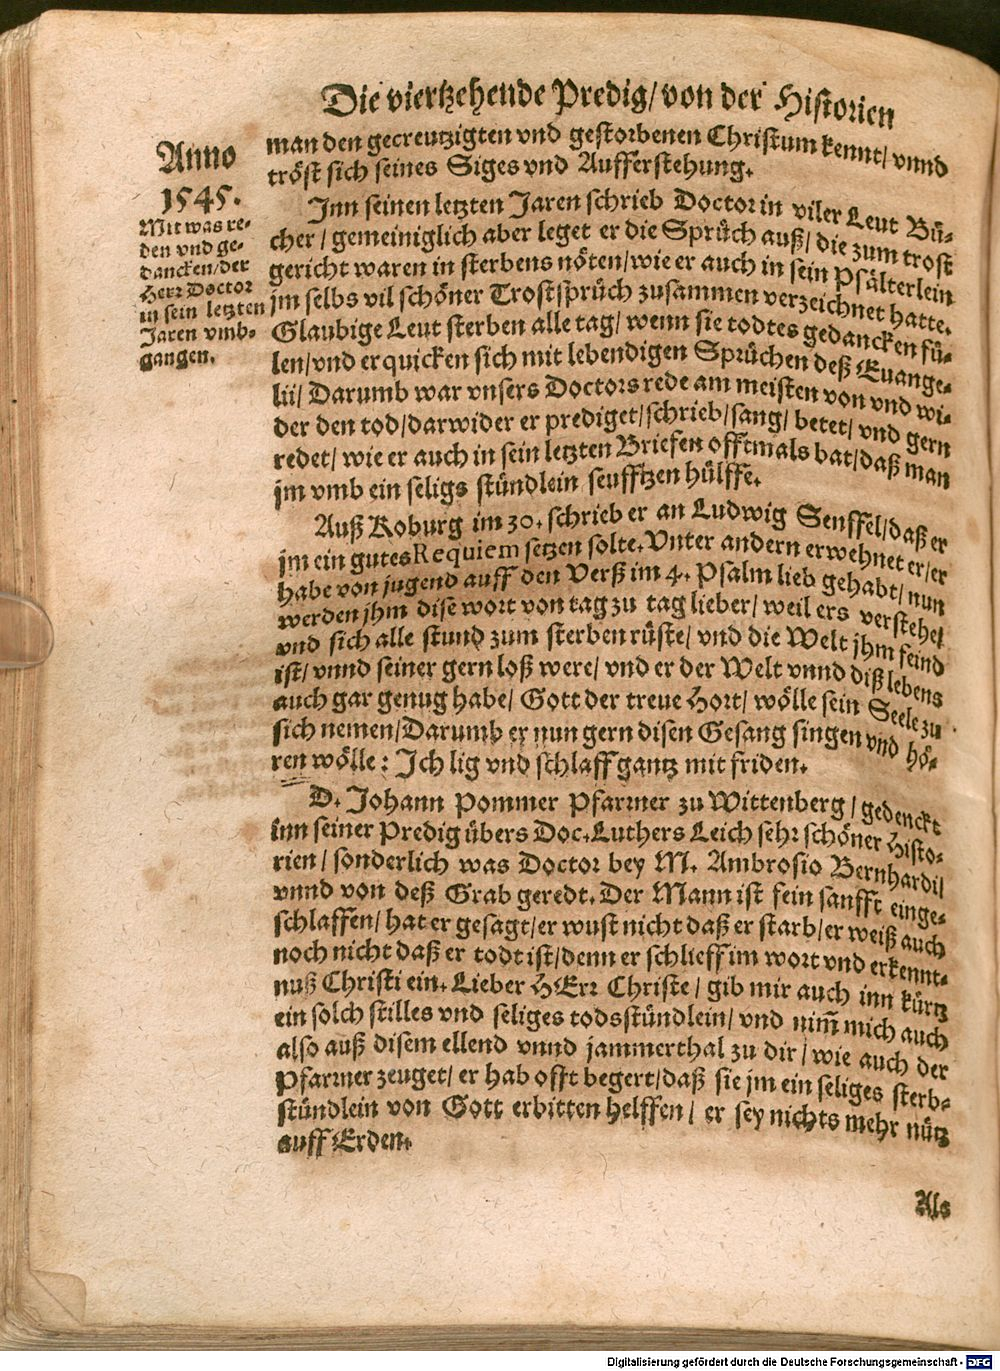 Die viertzehende Predig/ von der Historien
Anno
1545.
Mit was re-
den vnd ge-
dancken/ der
Herr Doctor
in sein letzten
Jaren vmb-
gangen.
man den gecreutzigten vnd gestorbenen Christum kennt/ vnnd
tröst sich seines Siges vnd Aufferstehung.
Inn seinen letzten Jaren schrieb Doctor in viler Leut Bü-
cher/ gemeiniglich aber leget er die Sprüch auß/ die zum trost
gericht waren in sterbens nöten/ wie er auch in sein Psälterlein
jm selbs vil schöner Trostsprüch zusammen verzeichnet hatte.
Glaubige Leut sterben alle tag/ wenn sie todtes gedancken fü-
len/ vnd erquicken sich mit lebendigen Sprüchen deß Euange-
lii/ Darumb war vnsers Doctors rede am meisten von vnd wi-
der den tod/ darwider er prediget/ schrieb/ sang/ betet/ vnd gern
redet/ wie er auch in sein letzten Briefen offtmals bat/ daß man
jm vmb ein seligs stündlein seufftzen hülffe.
Auß Koburg im 30. schrieb er an Ludwig Senffel/ daß er
jm ein gutes Requiem setzen solte. Vnter andern erwehnet er/ er
habe von jugend auff den Verß im 4. Psalm lieb gehabt/ nun
werden jhm dise wort von tag zu tag lieber/ weil ers verstehe/
vnd sich alle stund zum sterben rüste/ vnd die Welt jhm feind
ist/ vnnd seiner gern loß were/ vnd er der Welt vnnd diß lebens
auch gar genug habe/ Gott der treue Hort/ wölle sein Seele zu
sich nemen/ Darumb er nun gern disen Gesang singen vnd hö-
ren wölle: Ich lig vnd schlaff gantz mit friden.
D. Johann Pommer Pfarrner zu Wittenberg/ gedenckt
inn seiner Predig übers Doc. Luthers Leich sehr schöner Histo-
rien/ sonderlich was Doctor bey M. Ambrosio Bernhardil
vnnd von deß Grab geredt. Der Mann ist fein sanfft einge-
schlaffen/ hat er gesagt/ er wust nicht daß er starb/ er weiß auch
noch nicht daß er todt ist/ denn er schlieff im wort vnd erkennt-
nuß Christi ein. Lieber HErr Christe/ gib mir auch inn kürtz
ein solch stilles vnd seliges todsstündlein/ vnd nim̃ mich auch
also auß disem ellend vnnd jammerthal zu dir/ wie auch der
Pfarrner zeuget/ er hab offt begert/ daß sie jm ein seliges sterb-
stündlein von Gott erbitten helffen/ er sey nichts mehr nütz
auff Erden.
Als
Digitalisierung gefördert durch die Deutsche Forschungsgemeinschaft - DFG